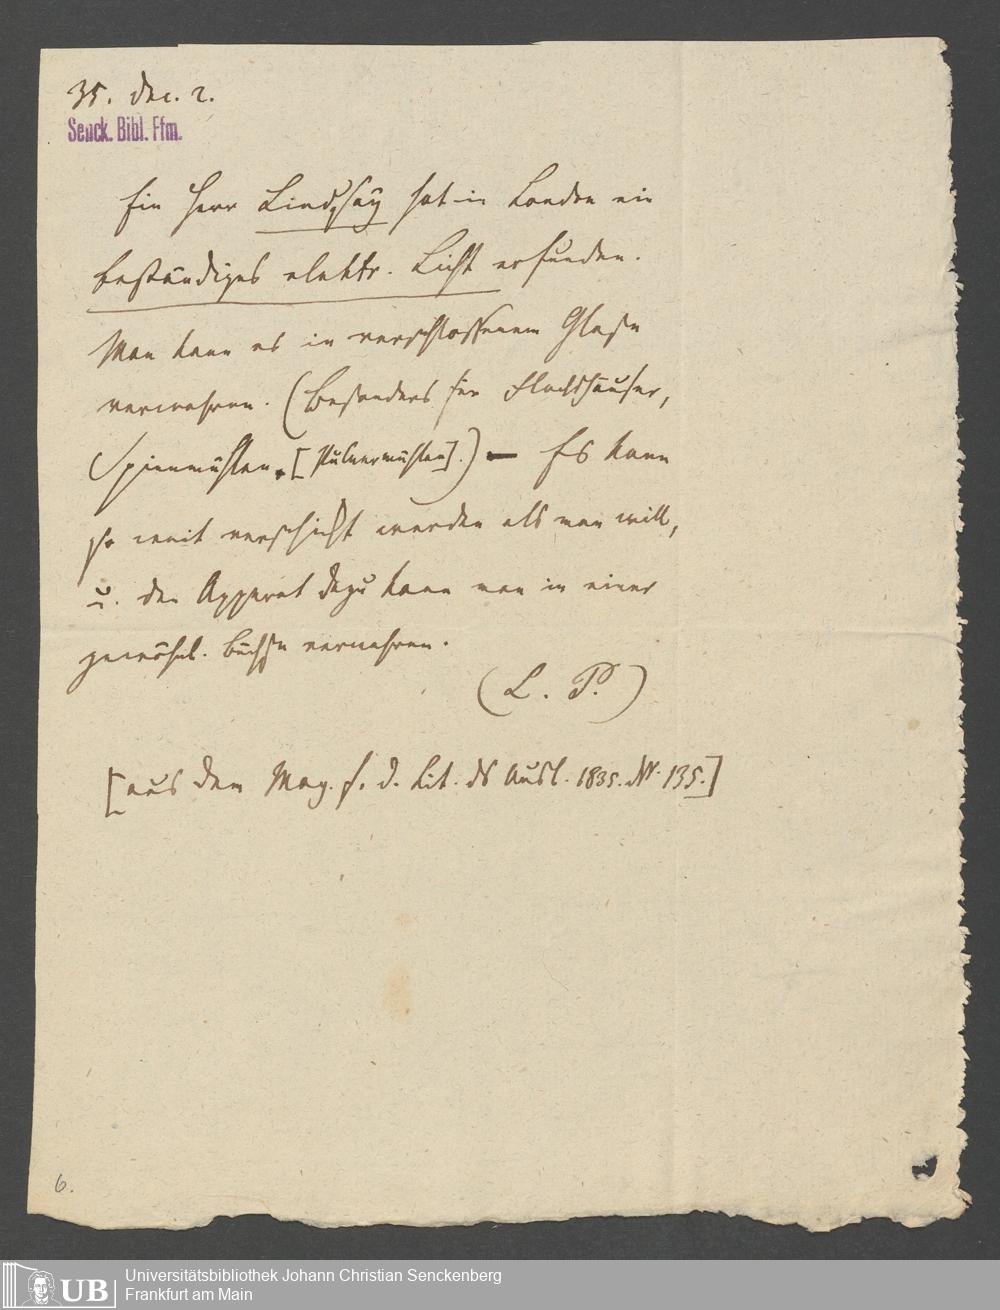 35. Dec. 2.
Senck. Bibl. Ffm.
Ein Herr Lindsay hat in London ein
beständiges elektr. Licht erfunden.
Man kann es in verschlossenem Glase
verwahren. (Besonders für Flachshäuser,
Spinnmühlen, [Pulvermühlen].) — Es kann
so weit verschickt werden als man will,
u. den Apparat dazu kann man in einer
gewöhnl. Büchse verwahren.
(L. P.)
[aus dem Mag. f. d. Lit. ds Ausl. 1835. N. 135.]
6.
UB Universitätsbibliothek Johann Christian Senckenberg
Frankfurt am Main